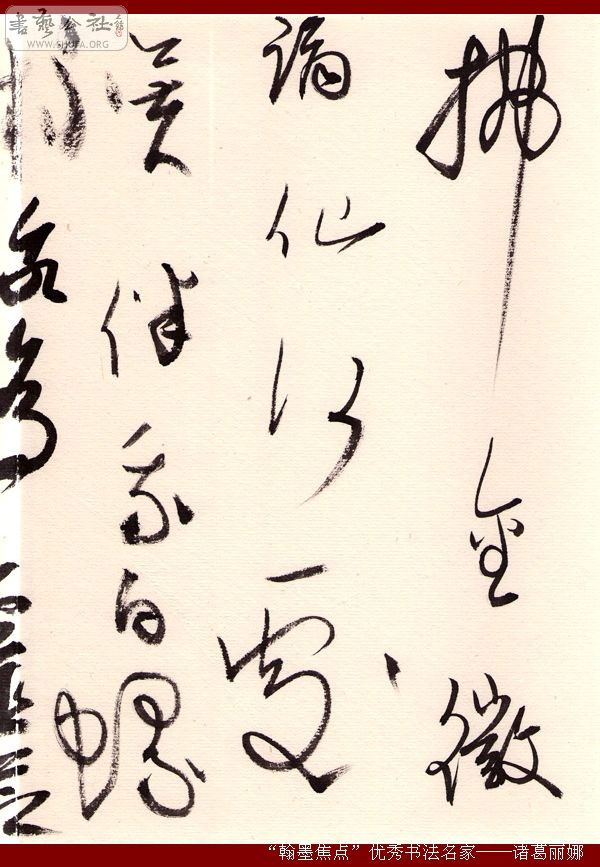 書藝公社
WWW.SHUFA.ORG
拂金徽
謫仙何處
無人伴我白螺
為
“翰墨焦点”优秀书法名家——诸葛丽娜